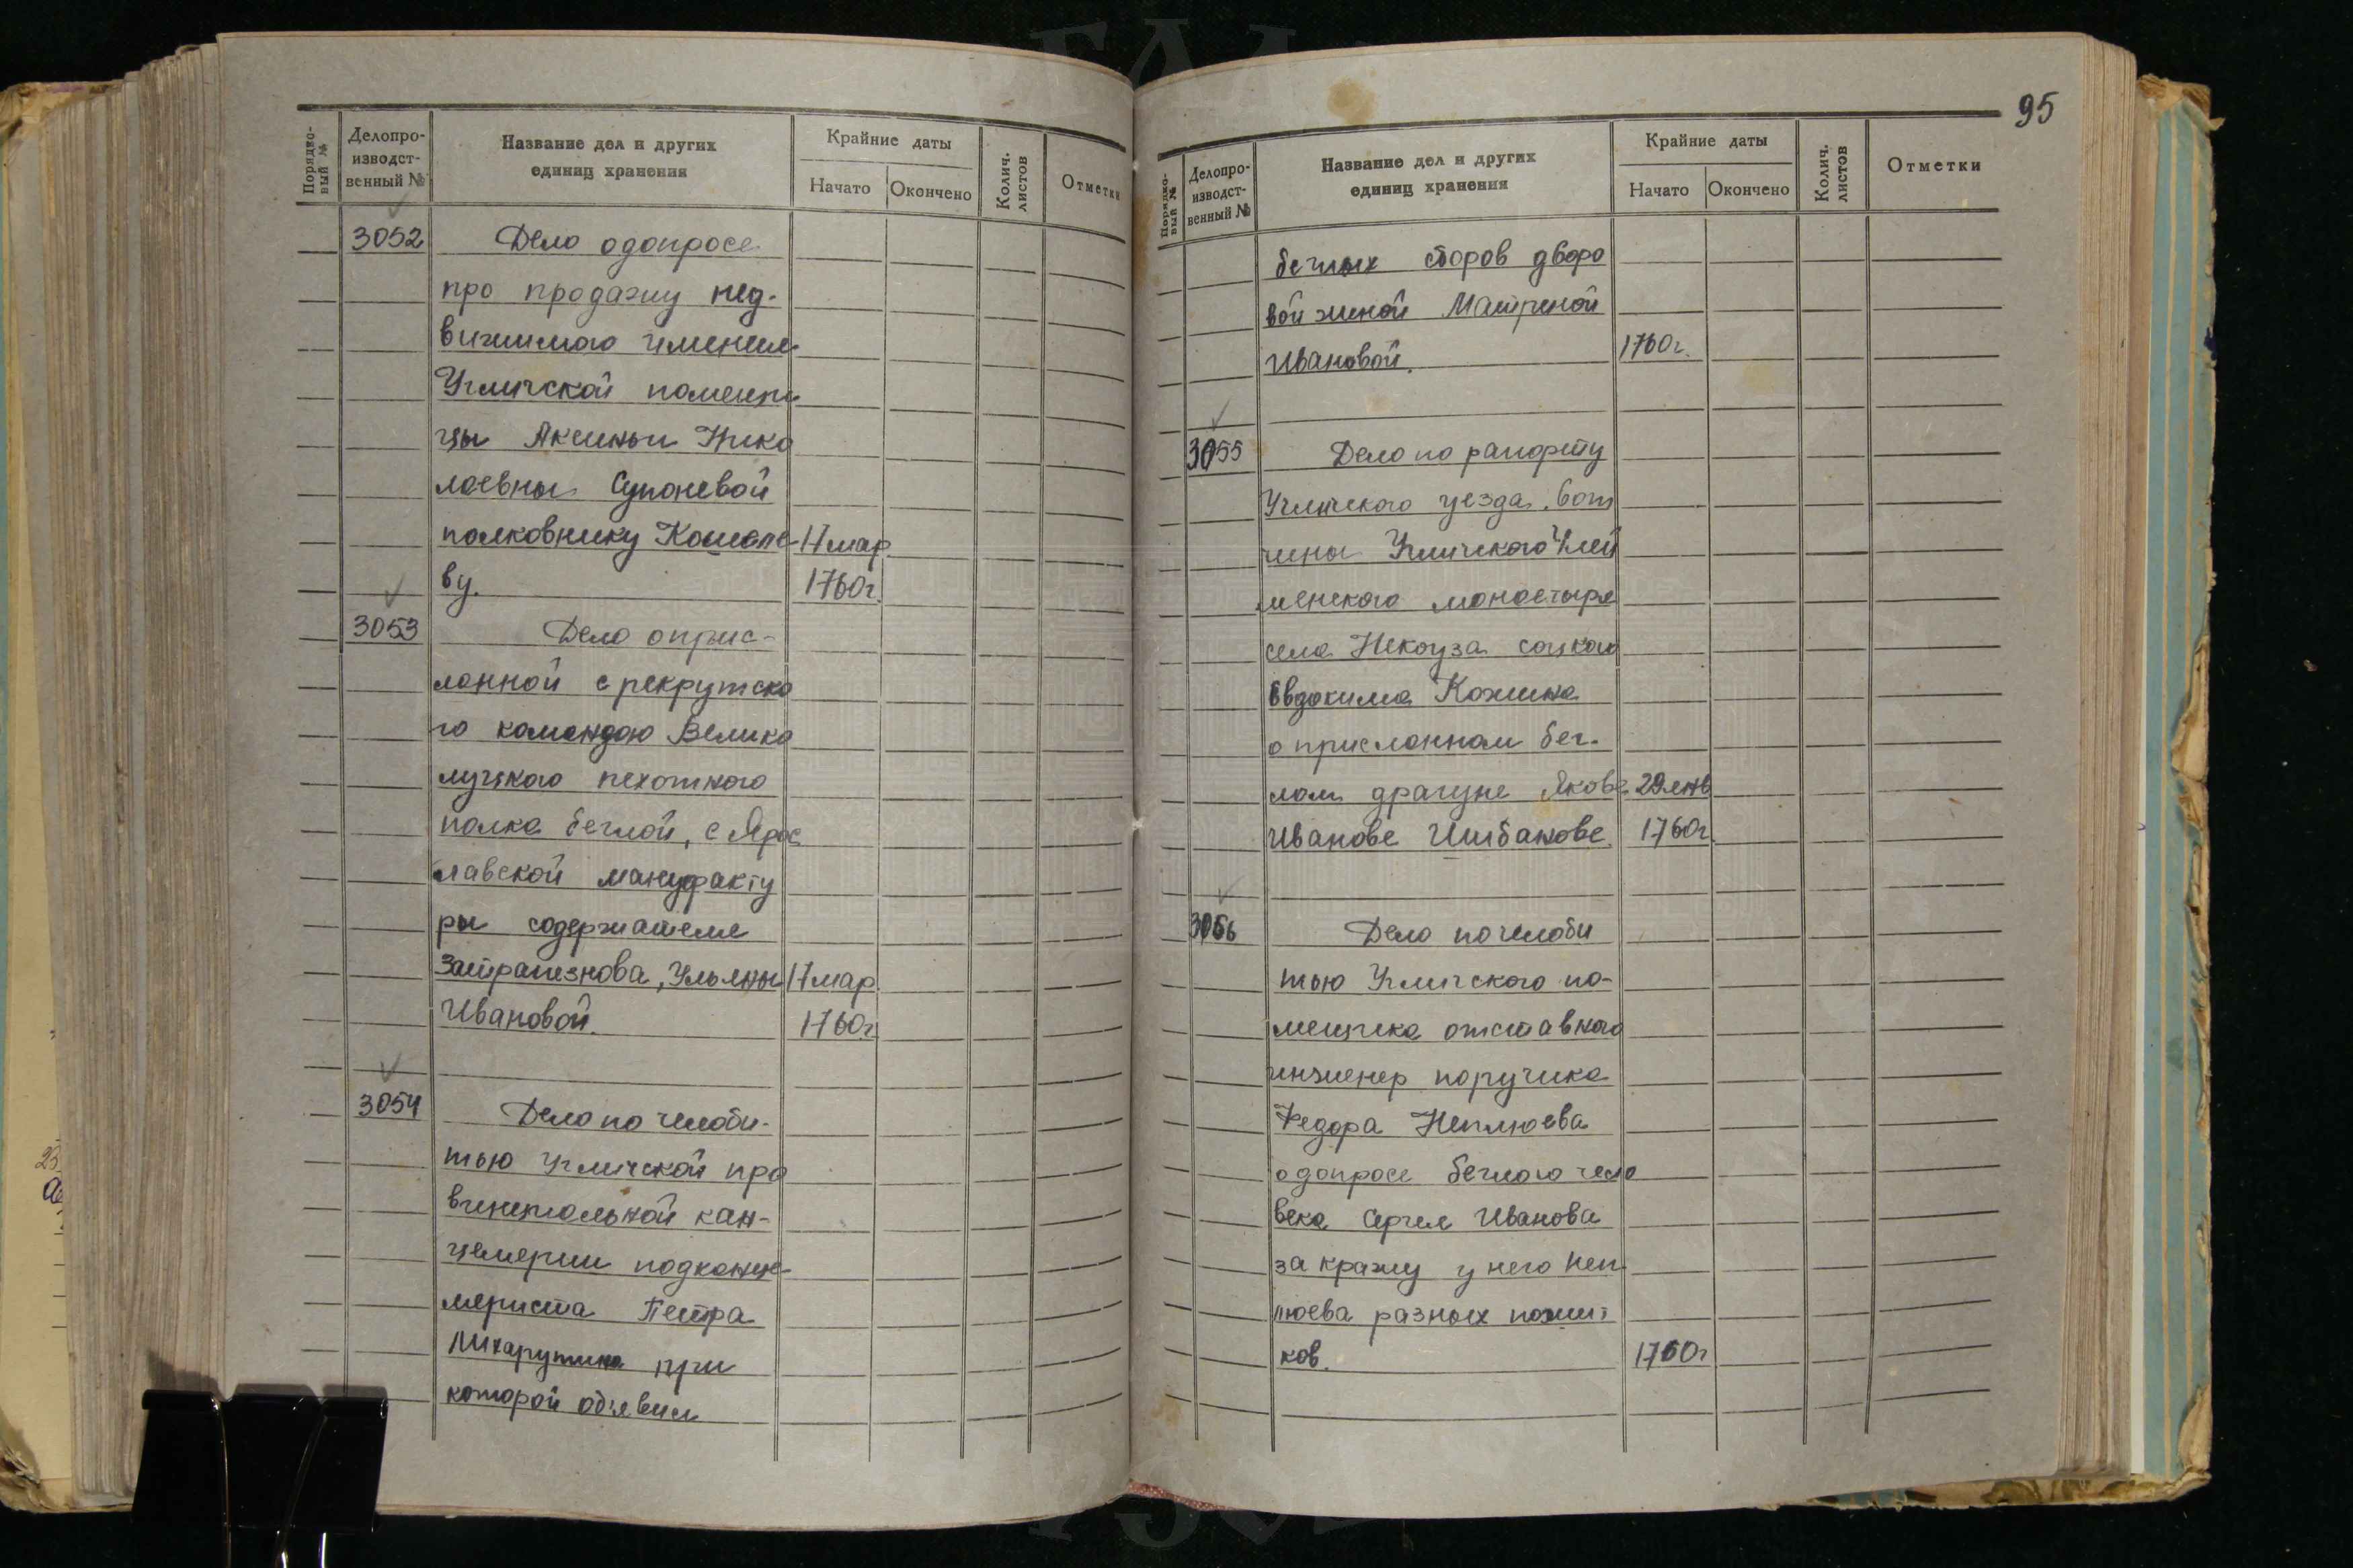 Порядко-
вый №
Делопро-
изводст-
венный №
Название дел и других
единиц хранения
Крайние даты
Начато
Окончено
Колич.
листов
Отметки
3052
Дело о допросе
про продажу нед-
вижимого имения
Угличской помещи
цы Аксиньи Нико
лаевны Супоневой
полковнику Кошеле- 17 мар.
ву. 1760г.
3053 Дело о прис-
ланной с рекрутско
го командою Велико
луцкого пехотного
полка беглой, с Ярос
лавской мануфакту
ры содержателя
Затрапезнова, Ульяны 17 мар.
Ивановой. 1760г.
3054 Дело по челоби-
тью Угличской про
винциальной кан-
целярии подканце-
ляриста Петра
при
которой объявил
95
Порядко-
вый №
Делопро-
изводст-
венный №
Название дел и других
единиц хранения
Крайние даты
Начато
Окончено
Колич.
листов
Отметки
беглых дворо
вой женой Матреной
Ивановой. 1760г.
3055 Дело по рапорту
Угличского уезда вот
чины Угличского Улей
менского монастыря
села Некоуза соцкого
Евдокима Кожина
о присланном бег-
лом драгуне Якове 29 янв
Иванове Шибанове. 1760г.
3056 Дело по челоби
тью Угличского по-
мещика отставного
инженер поручика
Федора Неплюева
о допросе беглого чело
века Сергея Иванова
за кражу у него Неп
люева разных пожит
ков. 1760г